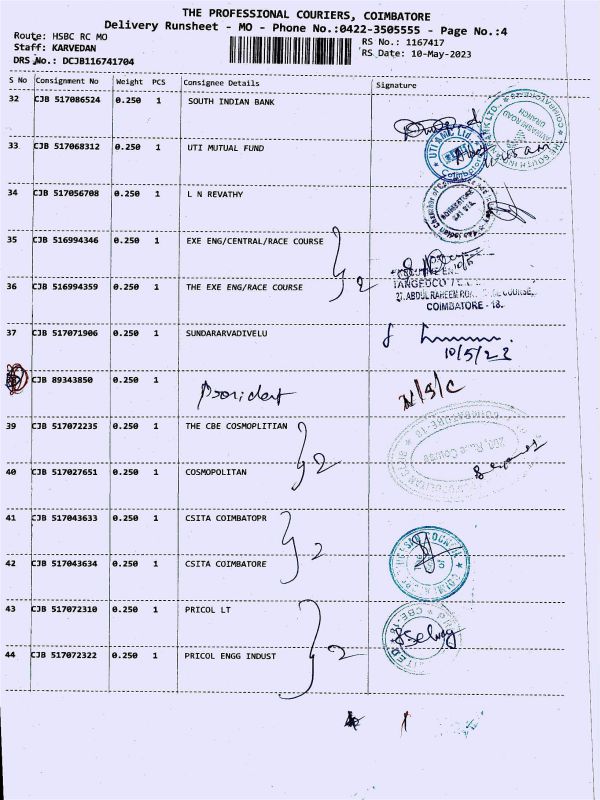 THE PROFESSIONAL COURIERS, COIMBATORE
Delivery Runsheet - MO - Phone No.:0422-3505555 - Page No.:4
Route: HSBC RC MO
Staff: KARVEDAN
DRS No.: DCJB116741704
RS No.: 1167417
RS Date: 10-May-2023
S No Consignment No Weight PCS Consignee Details Signature
32 CJB 517086524 0.250 1 SOUTH INDIAN BANK
33 CJB 517068312 0.250 1 UTI MUTUAL FUND
34 CJB 517056708 0.250 1 L N REVATHY
35 CJB 516994346 0.250 1 EXE ENG/CENTRAL/RACE COURSE
36 CJB 516994359 0.250 1 THE EXE ENG/RACE COURSE 2
COIMBATORE - 18.
37 CJB 517071906 0.250 1 SUNDARARVADIVELU
10/5/23
CJB 89343850 0.250 1
39 CJB 517072235 0.250 1 THE CBE COSMOPLITIAN
2
40 CJB 517027651 0.250 1 COSMOPOLITAN
41 CJB 517043633 0.250 1 CSITA COIMBATOPR
2
42 CJB 517043634 0.250 1 CSITA COIMBATORE
43 CJB 517072310 0.250 1 PRICOL LT
44 CJB 517072322 0.250 1 PRICOL ENGG INDUST 2